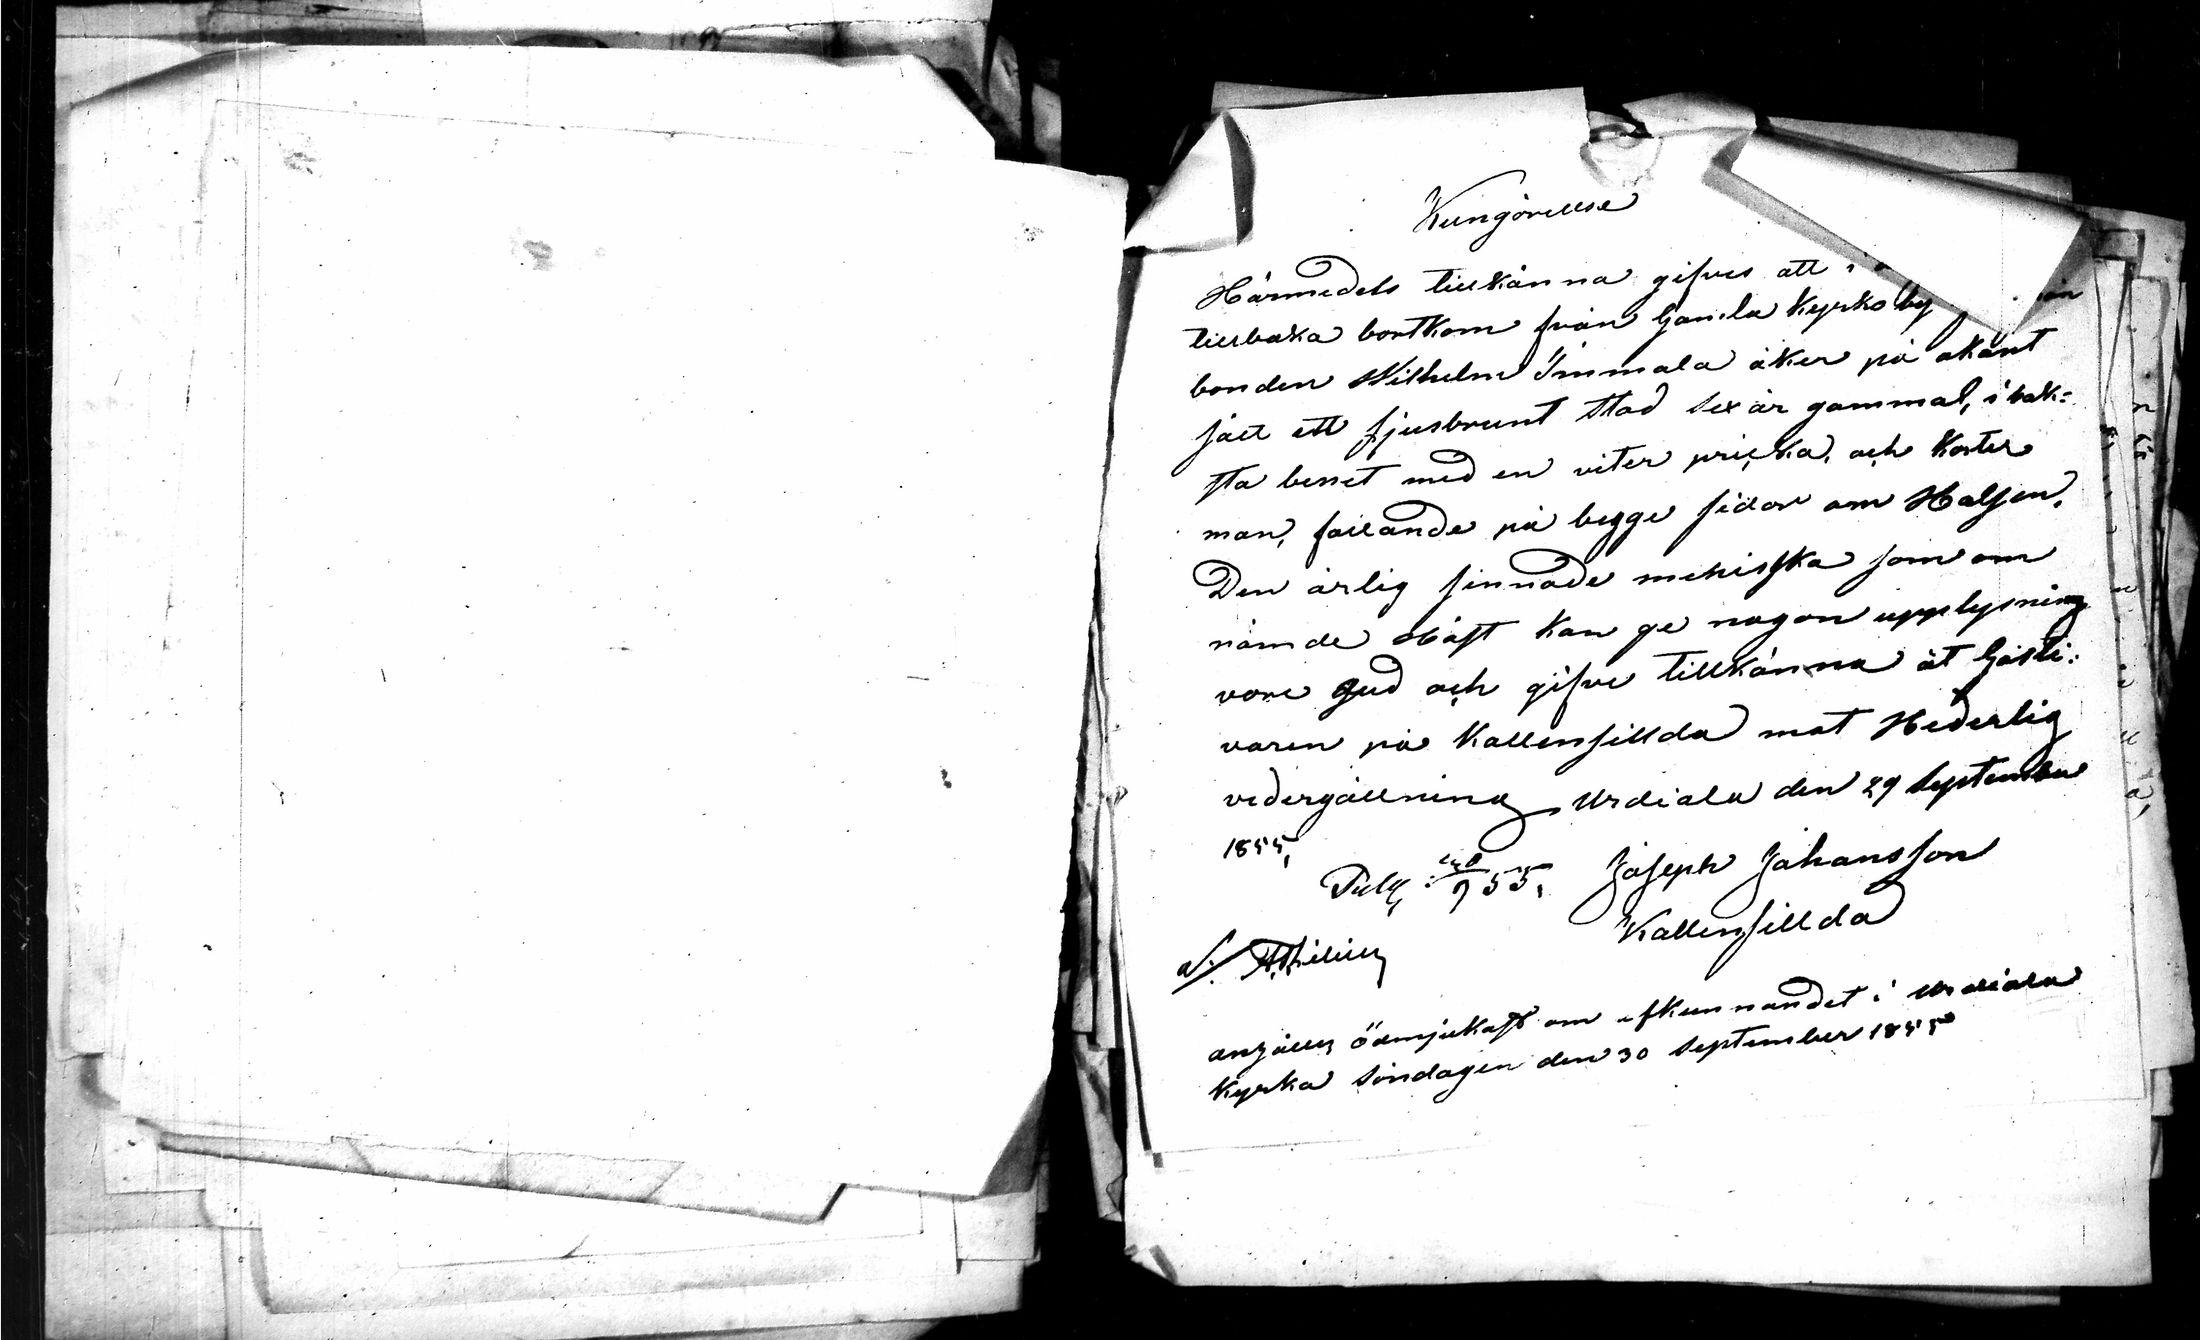 Kungörellse
Härmedels tillkänna gifves att i
tillbaka bortkom från Gamla Kyrko by
bonden Wilhelm Ommala åker på okänt
sätt ett ljusbrunt Stod sex år gammal, i bak=
sta benet med en viter pricka, och korter
man, fallande på begge sidor om Halsen,
Den ärlig sinnade mehisska som om
nämde Häst kan ge nogon upplysning
vore gud och gifve tillkänna åt Gästi:
varen på Kallensillda mot Hederlig
vedergällning Urdiala den 29 September
1855,
Publ, 55, Joseph Johansson
Kallensillda
ödmjukast om afkunnandet i Urdiala
Kyrka söndagen den 30 September 1855